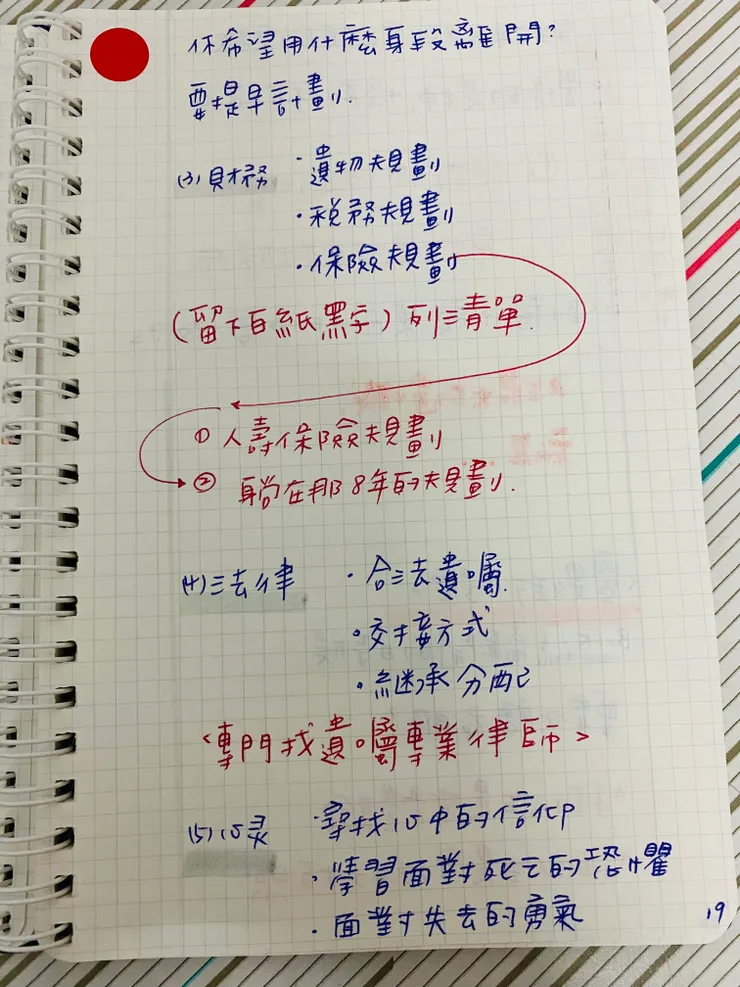 你希望用什麼身段離開?
要提早計劃.
(3)財務 ·遺物規劃
·稅務規劃
·保險規劃
(留下白紙黑字)列清單.
① 人壽保險規劃
② 躺在那8年的規劃.
(4)法律 ·合法遺囑
·交接方式
·繼承分配
<專門找遺囑專業律師>
(5)心灵 ·尋找心中的信仰
·學習面對死亡的恐懼
·面對失去的勇氣
19